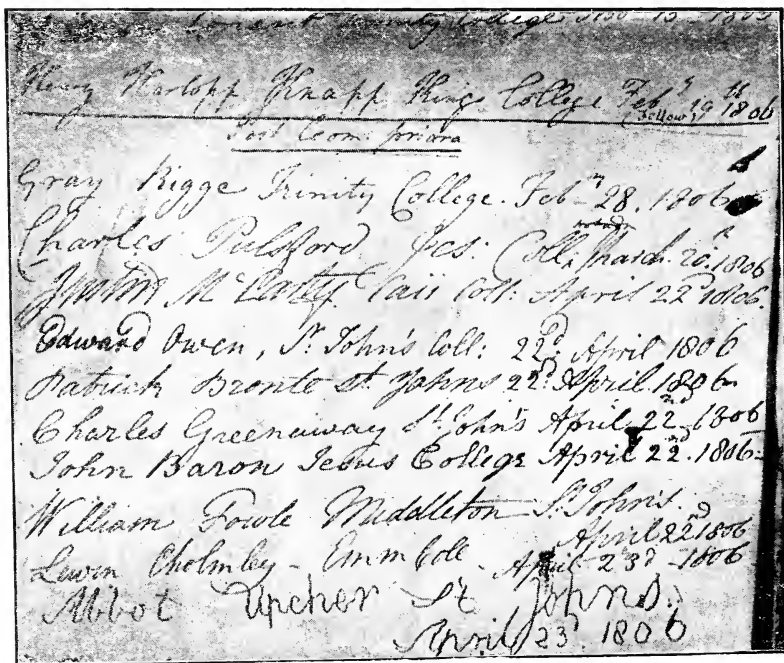 Trinity College 1806
Henry Hartopp Knapp King's College Feby 19th 1806
(Fellow)
Post Com: priora
Gray Rigge Trinity College. Feby 28. 1806
Charles Pulsford Jes: Coll. March. 20th. 1806
McCarty Caii Coll: April 22d 1806.
Edward Owen, St. John's Coll: 22d. April 1806
Patrick Bronte St. Johns 22d. April. 1806
Charles Greenaway St. John's April 22nd 1806
John Baron Jesus College April 22nd. 1806
William Fowle Middleton St. John's.
April 22nd 1806
Lewin Cholmley - Emm Coll - April 23d - 1806
Abbot Upcher St. Johns.
April 23d. 1806